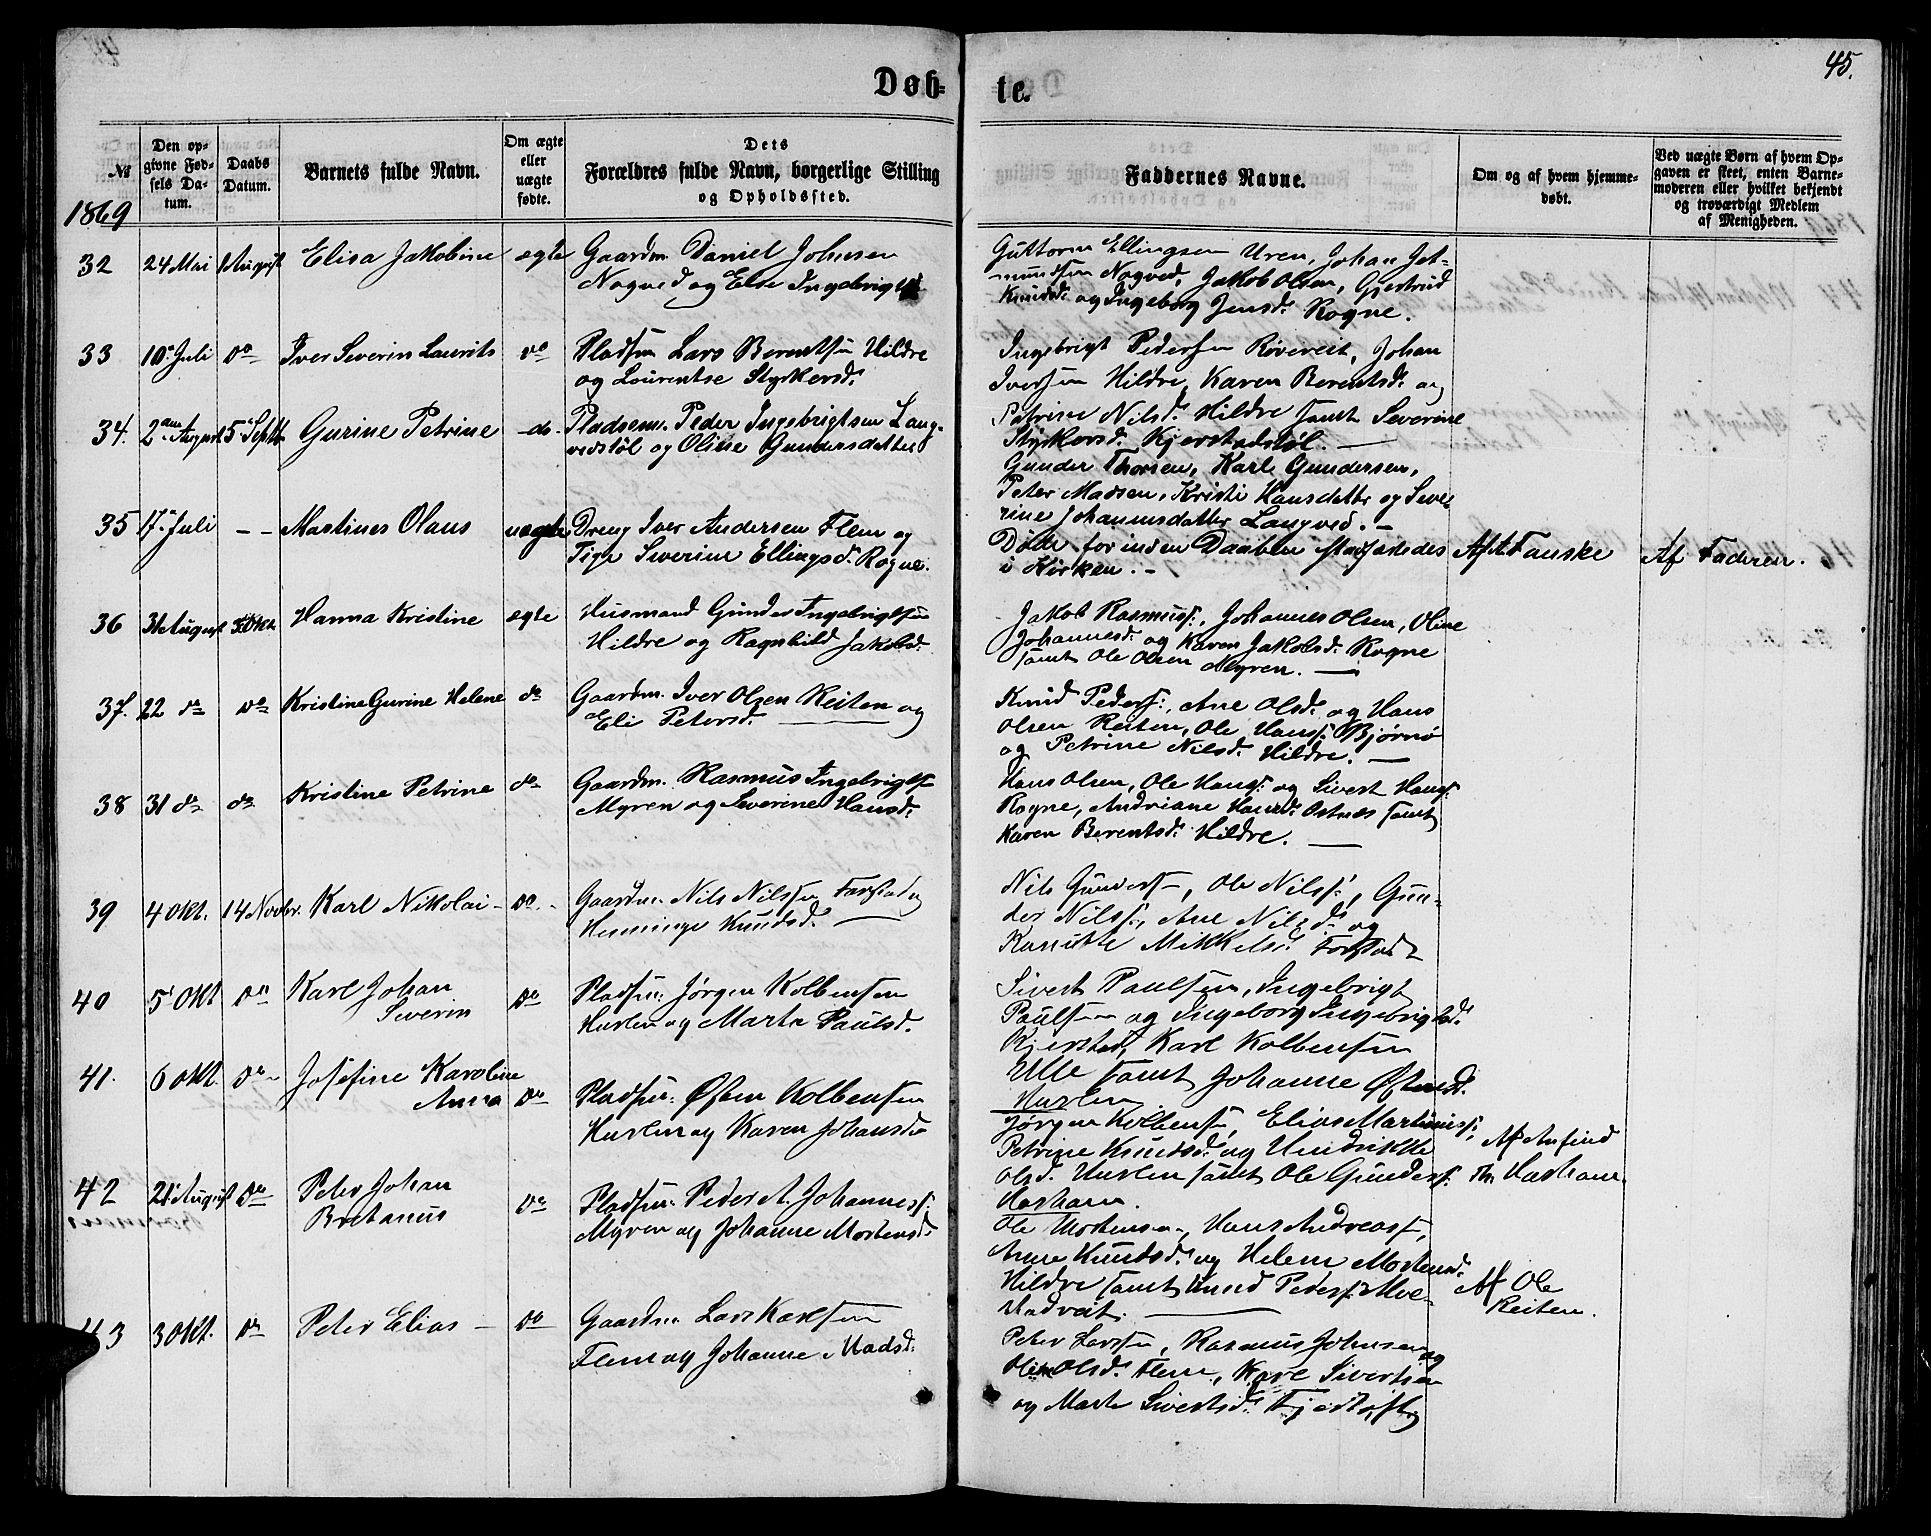 45.
Døb=
te.
№
Den op=
givne Fød=
sels Da=
tum.
Daabs
Datum.
Barnets fulde Navn.
Om ægte
eller
uægte
fødte.
Dets
Forældres fulde Navn, borgerlige Stilling
og Opholdssted.
Faddernes Navne.
Om og af hvem hjemme=
døbt.
Ved uægte Børn af hvem Op=
gaven er skeet, enten Barne=
moderen eller hvilket bekjendt
og troværdigt Medlem
af Menigheden.
1869
32 24 Mai 1 August Elisa Jakobine ægte Gaardm. Daniel Johnsen
Nogved og Else Ingebrigtsd
Guttorm Ellingsen Uren, Johan Jet-
mundsen Nogved, Jakob Olsen, Gjertrud
Knudsd. og Ingeborg Jensd. Rogne.
33 10. Juli do Iver Severin Laurits do Pladsm Lars Berentsen Hildre
og Lourentse Styrkersd.
Ingebrigt Pedersen Røvereit, Johan
Iversen Hildre, Karen Berentsd. og
Petrine Nilsd. Hildre samt Severine
Styrkersd. Kjerstadstøl. —
34. 2den August 5. Septbr Gurine Petrine do. Pladsem. Peder Ingebrigtsen Lang-
vedstøl og Oline Gundersdatter
Gunder Thorsen, Karl Gundersen,
Peter Madsen, Kristi Hansdatter og Seve-
rine Johannesdatter Langved. —
35 17. Juli - - Martines Olaus uægte Dreng Iver Andersen Flem og
Pige Severine Ellingsd. Rogne.
Døde forinden Daaben stadfæstedes
i Kirken. -
Af A. Fauske
Af Faderen.
36 31 August 3. Okt. Hanna Kristine ægte Husmand Gunder Ingebrigtsen
Hildre og Ragnhild Jakobsd.
Jakob Rasmuss., Johannes Olsen, Oline
Johannesd. og Karen Jakobsd. Rogne
samt Ole Olsen Myren. —
37. 22 do do Kristine Gurine Helene do Gaardm. Iver Olsen Reiten og
Eli Petersd. —
Knud Peders., Ane Olsd. og Hans
Olsen Reiten, Ole Hans. Bjørnø
og Petrine Nilsd. Hildre. —
38 31 do do Kristine Petrine do Gaardm. Rasmus Ingebrigts
Myren og Severine Hansd.
Hans Olsen, Ole Hans. og Sivert Hans.
Rogne, Andriane Hansd. Ostnes samt
Karen Berentsd. Hildre. —
39 4 Okt. 14 Novbr. Karl Nikolai - do - Gaardm. Nils Nilssen Farstad og
Henninge Knudsd. —
Nils Gunders, Ole Nilss., Gun-
der Nilss., Ane Nilsd. og
Mikkelsd. Farstad
40 5 Okt do Karl Johan
Severin do Pladsm: Jørgen Kolbensen
Huslen og Marte Paulsd.
Sivert Paulsen, Ingebrigt
Paulsen og Ingeborg Ingebrigtsd.
Kjerstad, Karl Kolbensen
Ulle samt Johanne Østensd.
Huslen
41. 6 Okt. do Josefine Karoline
Anna do Pladsm: Østen Kolbensen
Huslen og Karen Johansd
Jørgen Kolbens, Elias Martinuss.,
Petrine Knudsd. og Hendrikke
Olsd. Huslen samt Ole Gunders.
Harham.
Af Anfind
Th. Harham.
42 21 August do Peter Johan
Bretanus do Pladsm: Peder A. Johanness.
Myren og Johanne Mortensd
Ole Mortensen, Hans Andreas,
Anne Knudsd. og Helene Mortensd.
Hildre samt Knud Peders. Moe-
stadreit. —
Af Ole
Reiten.
43 3 Okt. do Peter Elias - do Gaardm Lars Karlsen
Flem og Johanne Madsd.
Peter Larssen, Rasmus Johnsen og
Olsd. Flem, Karl Sivertsen
og Marte Sivertsd. Fjærtoft